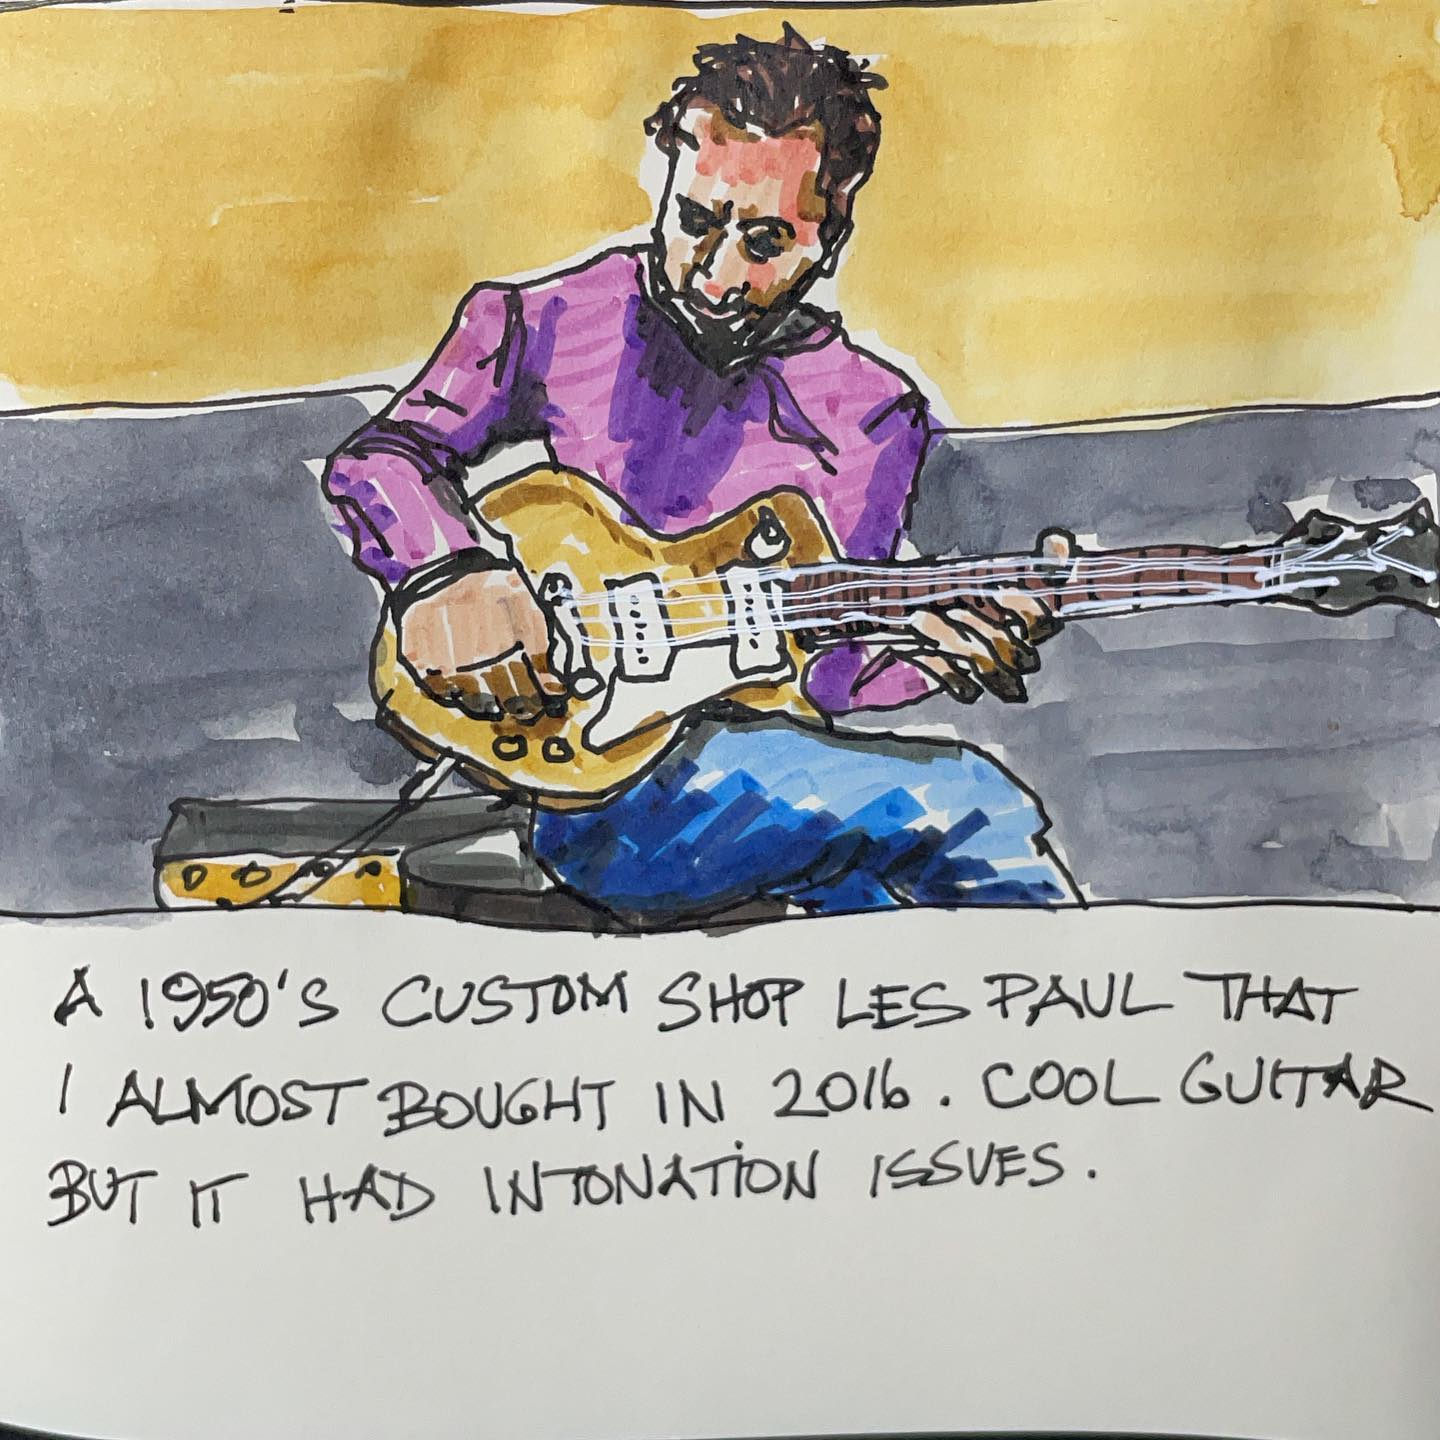 A 1950'S CUSTOM SHOP LES PAUL THAT
I ALMOST BOUGHT IN 2016. COOL GUITAR
BUT IT HAD INTONATION ISSUES.